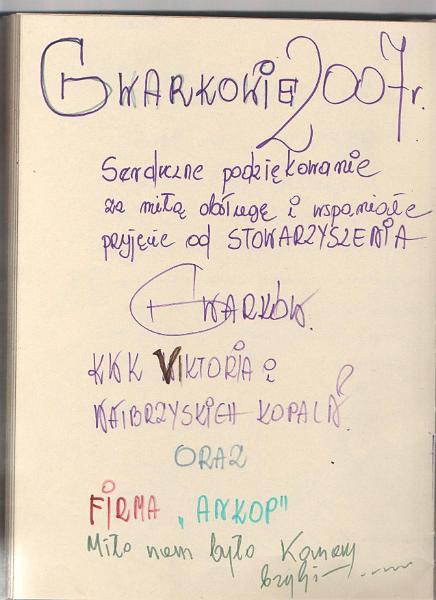 GWARKOWIE 2007r.
Serdeczne podziękowanie
za miłą obsługę i wspaniałe
przyjęcie od STOWARZYSZENIA
GWARKÓW.
KWK VIKTORIA i
WAŁBRZYSKICH KOPALŃ
ORAZ
FIRMA „ANKOP"
Miło nam było